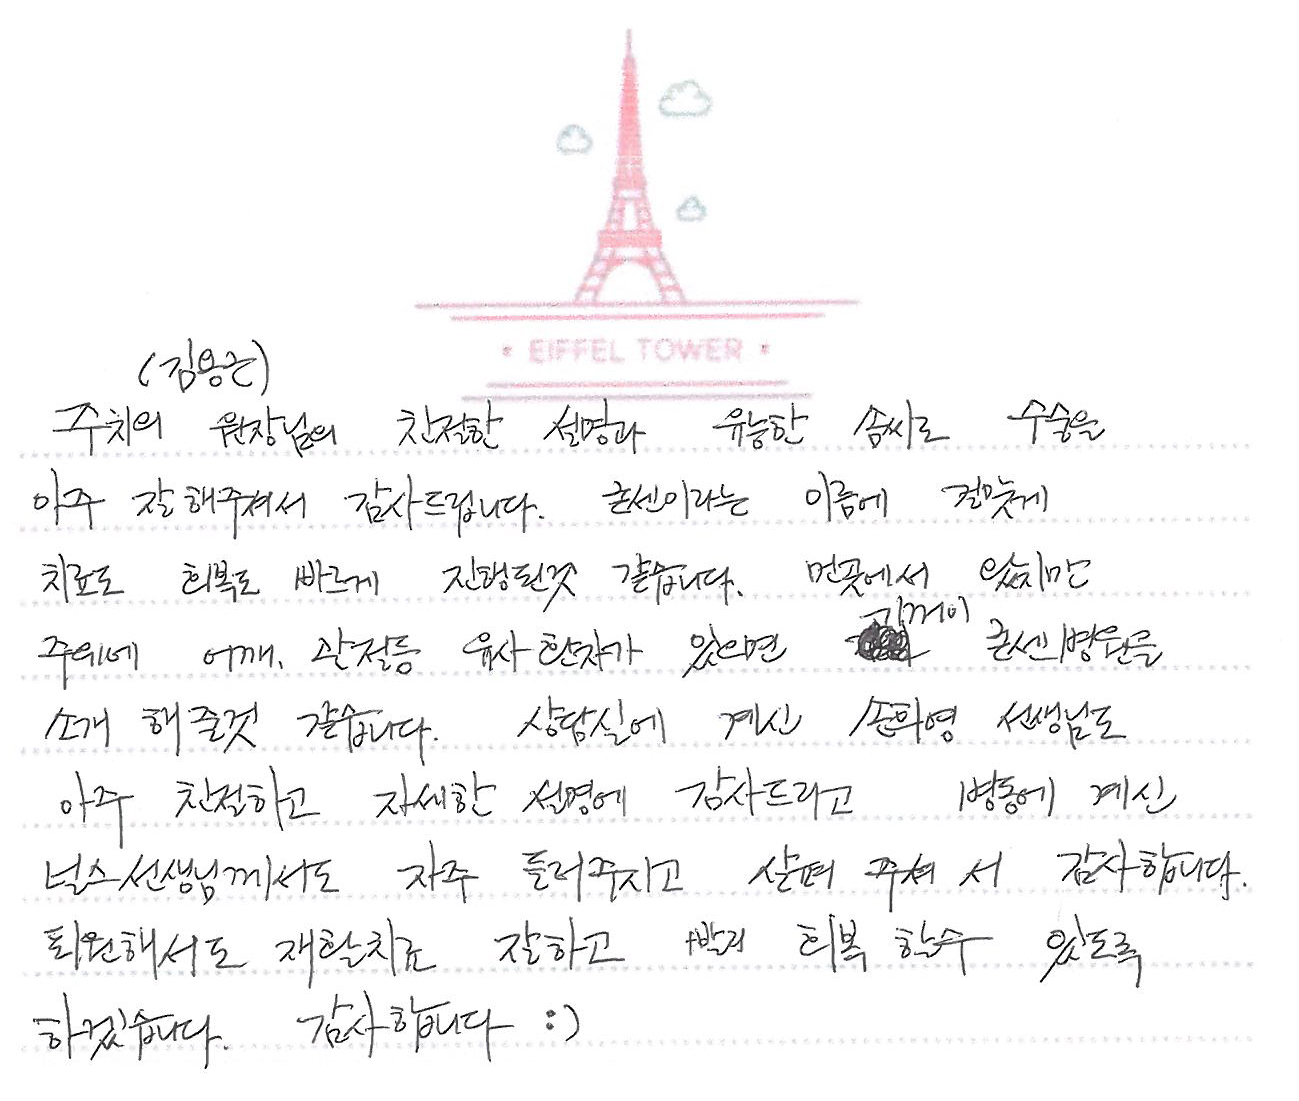 • EIFFEL TOWER •
(김용근)
주치의 원장님의 친절한 설명과 유능한 솜씨로 수술을
아주 잘 해주셔서 감사드립니다. 굳센이라는 이름에 걸맞게
치료도 회복도 빠르게 진행된것 같습니다. 먼곳에서 왔지만
주위에 어깨, 관절등 유사환자가 있으면 기꺼이 굳센병원을
소개 해줄것 같습니다. 상담실에 계신 손화영 선생님도
아주 친절하고 자세한 설명에 감사드리고 병동에 계신
널스선생님께서도 자주 들러주시고 살펴 주셔 서 감사합니다.
퇴원해서도 재활치료 잘하고 빨리 회복 할수 있도록
하겠습니다. 감사합니다 :)